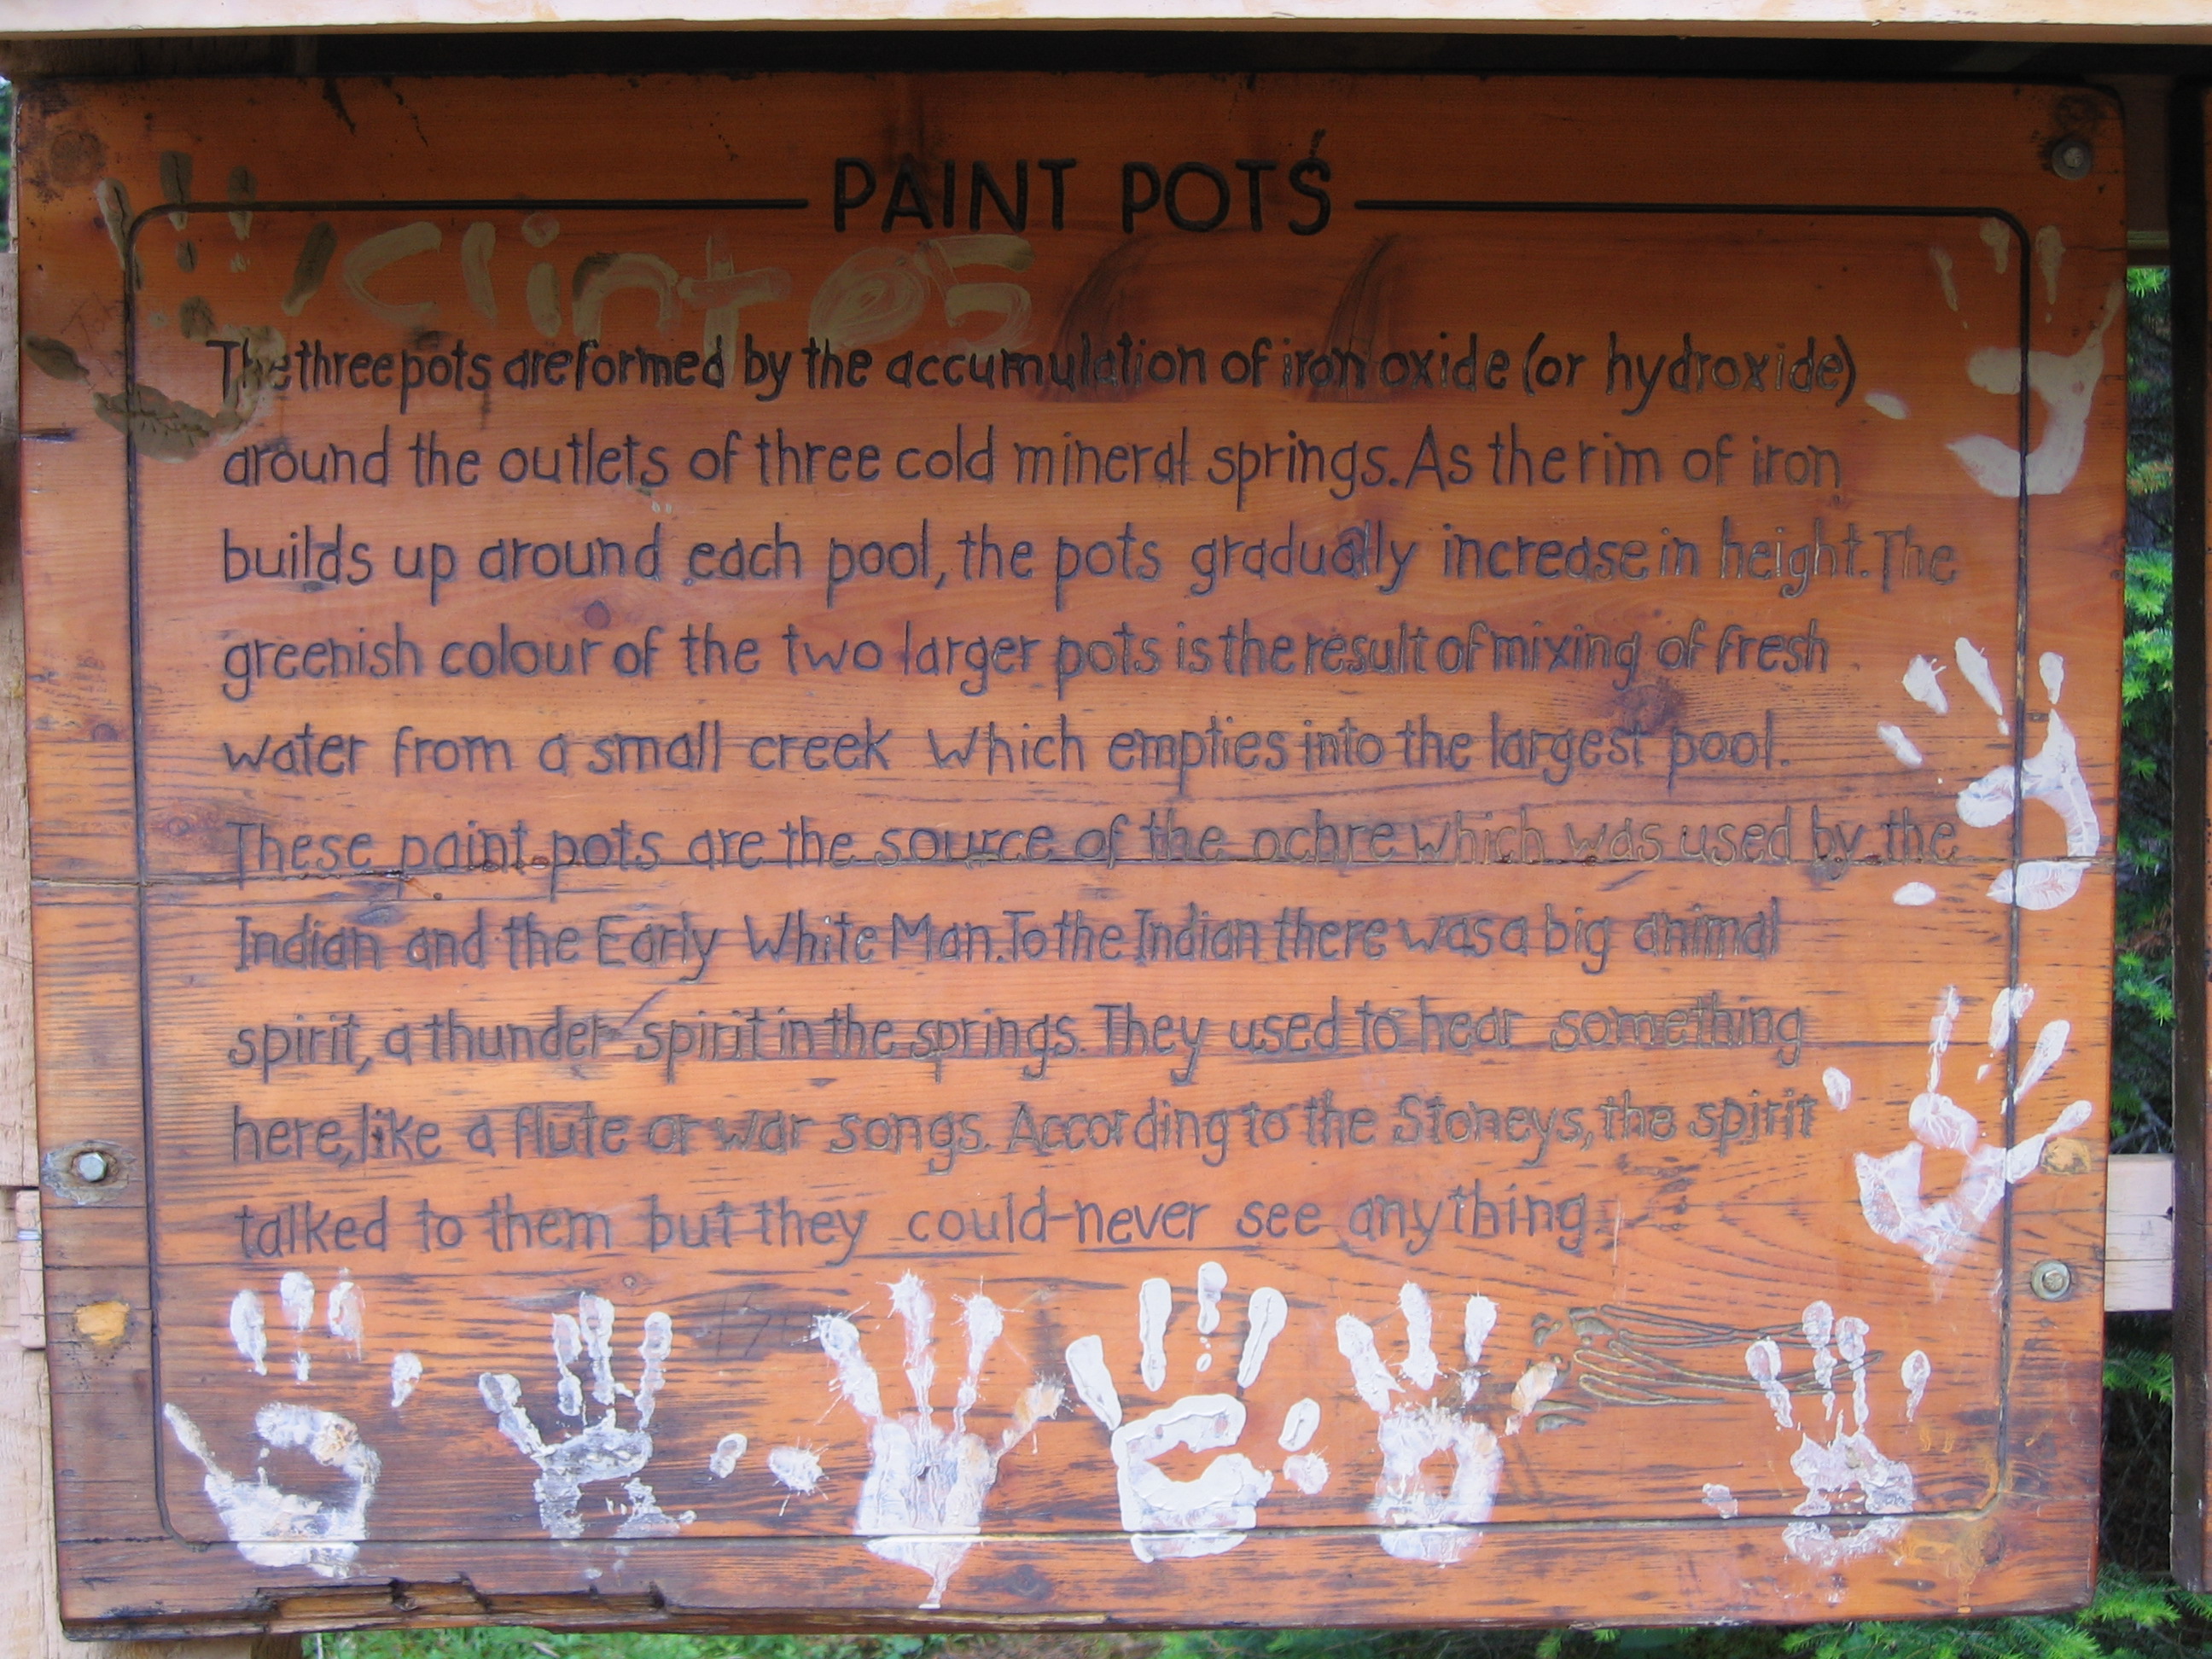 PAINT POTS
clint 05
The three pots are formed by the accumulation of iron oxide (or hydroxide)
around the outlets of three cold mineral springs. As the rim of iron
builds up around each pool, the pots gradually increase in height. The
greenish colour of the two larger pots is the result of mixing of fresh
water from a small creek which empties into the largest pool.
These paint pots are the source of the ochre which was used by the
Indian and the Early White Man. To the Indian there was a big animal
spirit, a thunder spirit in the springs. They used to hear something
here, like a flute or war songs. According to the Stoneys, the spirit
talked to them but they could never see anything.